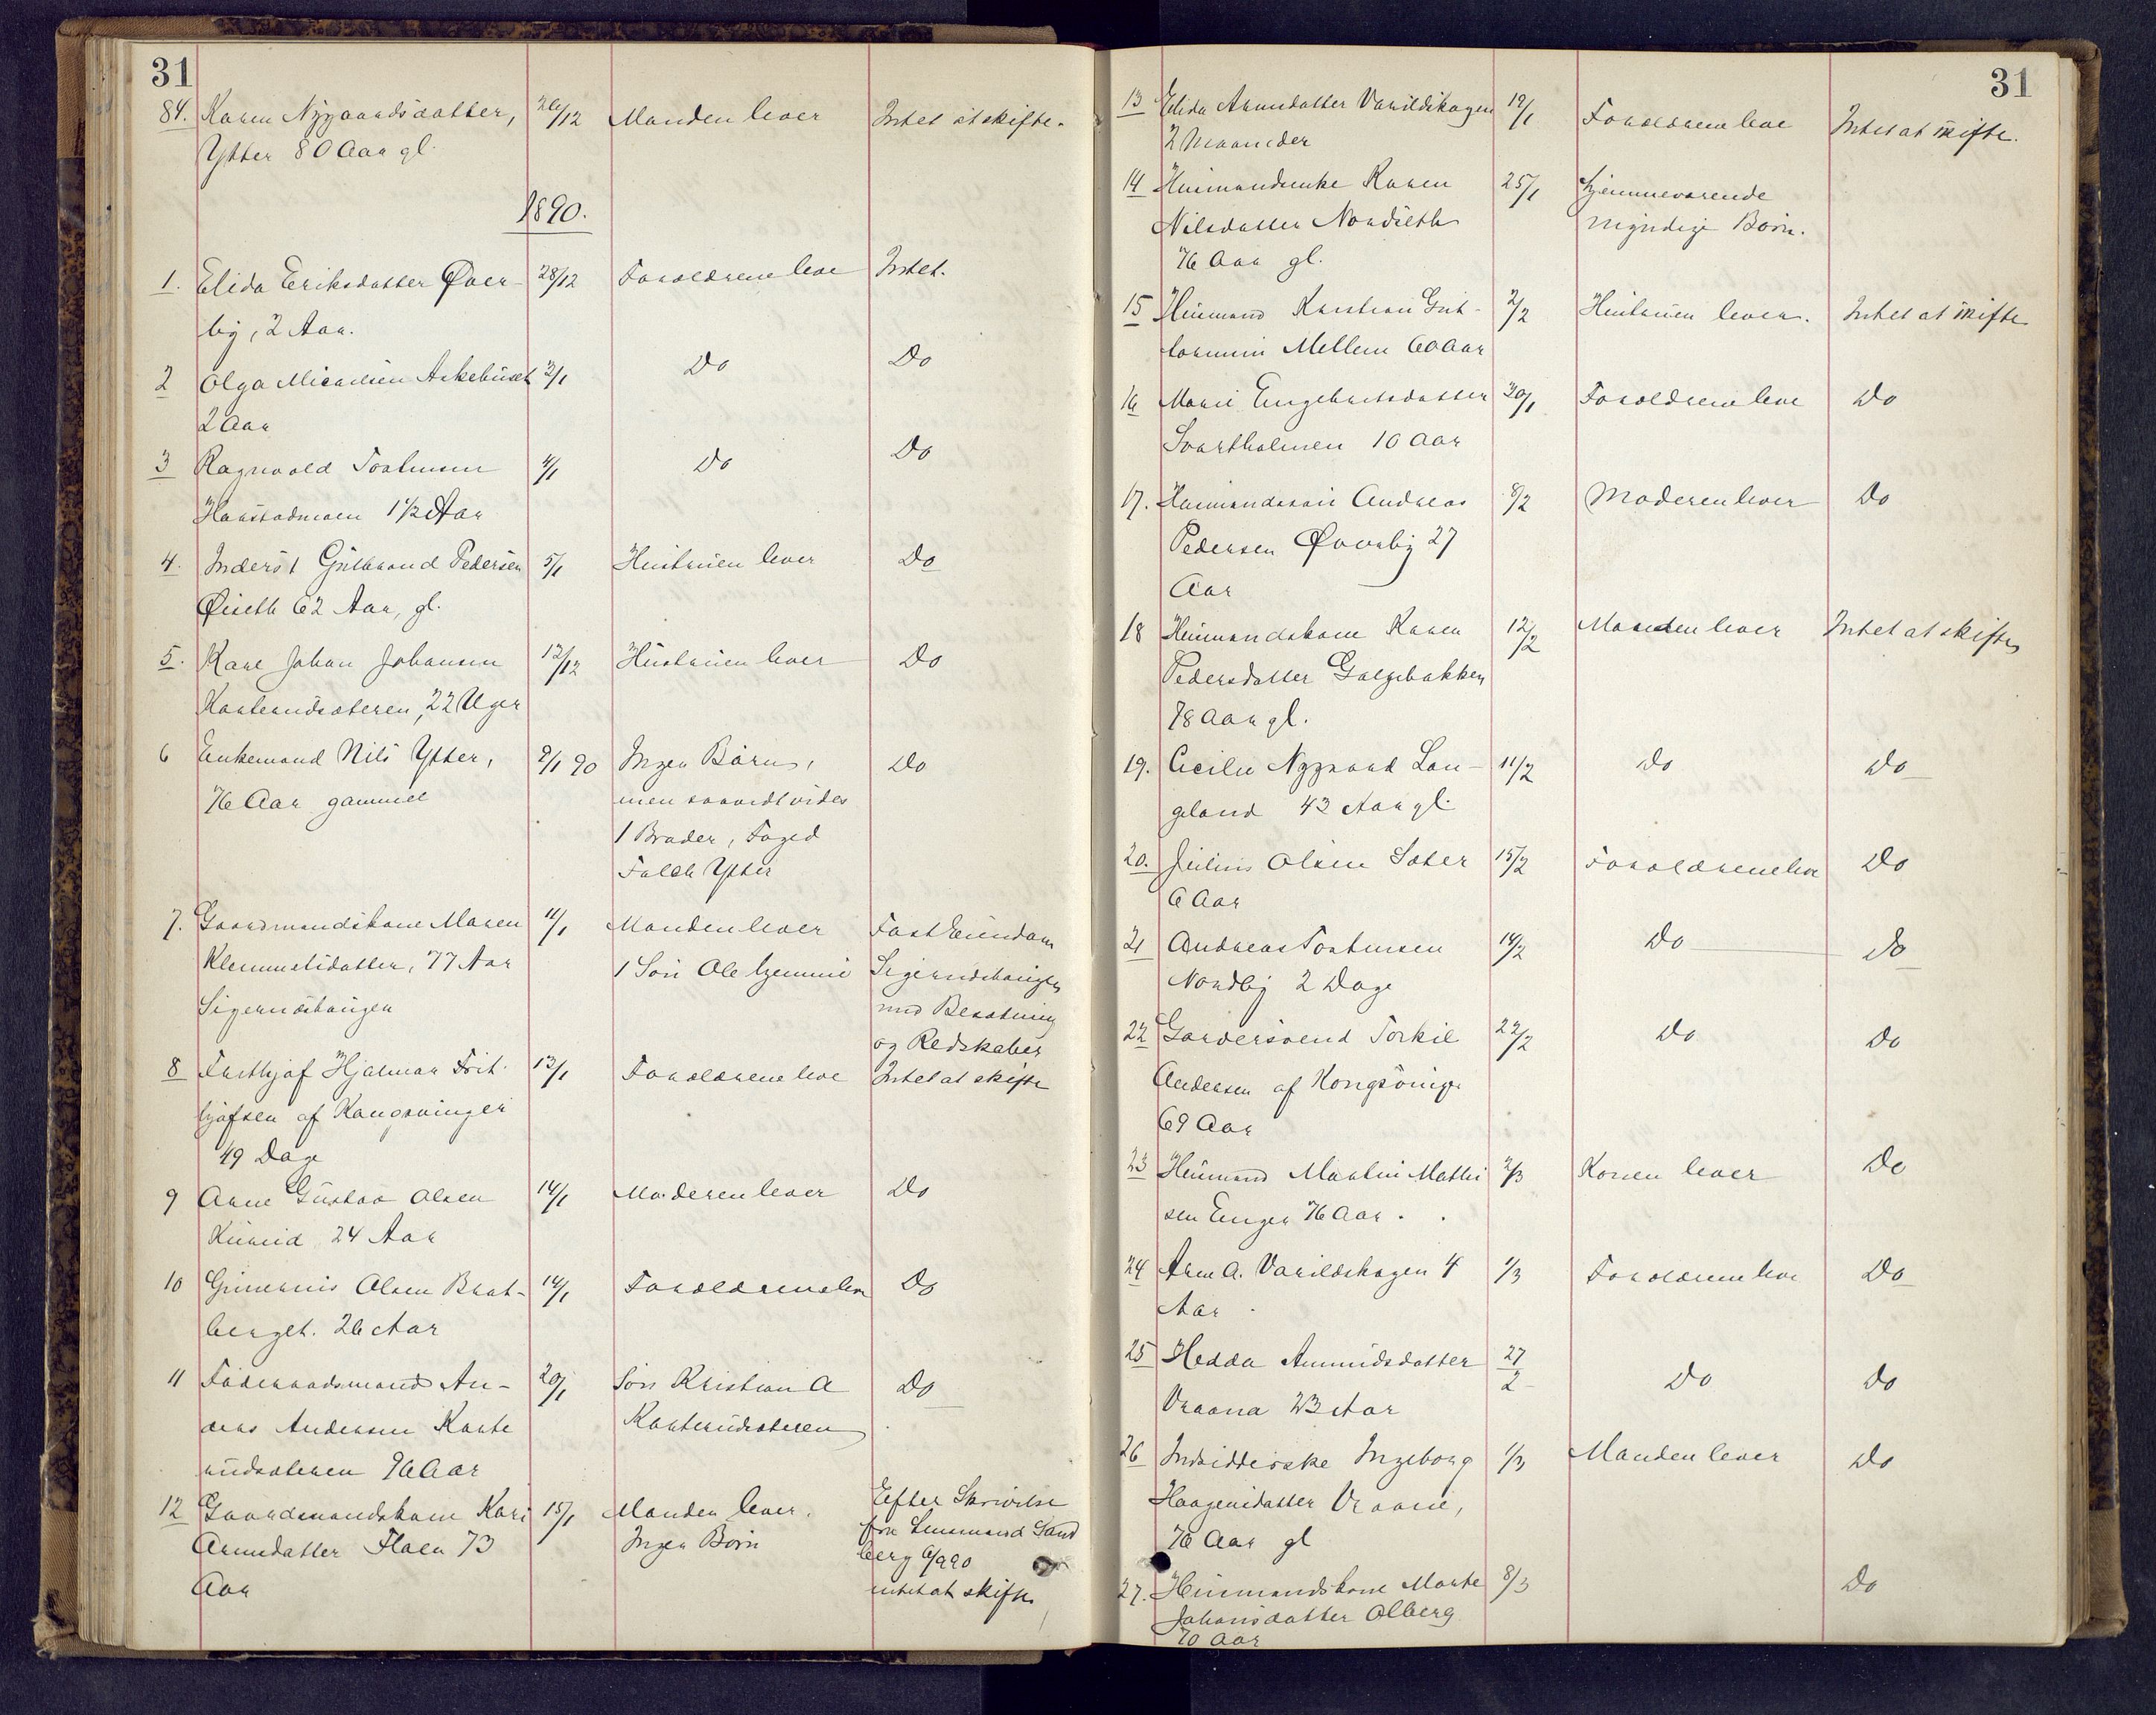 31
84. Karen Nygaardsdatter, 26/12 Manden lever Intet at skifte.
Ytter 80 Aar gl.
1890.
1. Elida Eriksdatter Øver- 28/12 Forældrene leve Intet.
by, 2 Aar.
2 Olga Micaelsen Askehuset 2/1 Do Do
2 Aar
3 Ragnvald Tostensen 4/1 Do Do
Haarstadmoen 1 1/2 Aar
4. Inderst Gulbrand Pedersen 5/1 Hustruen lever Do
Øiseth 62 Aar, gl.
5. Karl Johan Johansen 12/12 Hustruen lever Do
Karterudsæteren, 22 Uger
6 Enkemand Nils Ytter, 9/1 90 Ingen Børn, Do
76 Aar gammel men saavidt vides
1 Broder, Foged
Falck Ytter
7. Gaardmandskone Maren 11/1 Manden lever Fast Eiendom
Klemmetsdatter, 77 Aar 1 Søn Ole hjemme Sigernæshaugen
Sigernæshaugen med Besætning
og Redskaber
8 Frithjof Hjalmar Frit- 13/1 Forældrene leve Intet at skifte
hjofsen af Kongsvinger
49 Dage
9 Arne Gustav Olsen 14/1 Moderen lever Do
24 Aar
10 Olsen Brat- 14/1 Forældrene leve Do
berget. 26 Aar
11 Føderaadsmand An- 20/1 Søn Kristian A Do
dreas Andersen Karte Karterudsæteren
rudsæteren 96 Aar
12 Gaardmandskone Kari 15/1 Manden lever. Efter Skrivelse
Arnesdatter Floen 73 Ingen Børn fra Lensmand Sand
Aar berg 6/2 90
intet at skifte
31
13 Elida Arnesdatter Varildskogen 19/1 Forældrene leve Intet at skifte.
2 Maaneder
14 Husmandsenke Karen 25/1 Hjemmeværende
Nilsdatter Nordseth myndige Børn.
76 Aar gl.
15 Husmand Karstian Gut- 2/2 Hustruen lever. Intet at skifte
tormsen Mellem 60 Aar
16 Marie Engebretsdatter 30/1 Forældrene leve Do
Svartholmen 10 Aar
17. Husmandssøn Andreas 8/2 Moderen lever Do
Pedersen Øverby 27
Aar
18 Husmandskone Karen 12/2 Manden lever Intet at skifte
Pedersdatter Galgebakken
78 Aar gl.
19. Cicilie Nygaard Lan- 11/2 Do Do
geland 43 Aar gl.
20. Julius Olsen Sæter 15/2 Forældrene leve Do
6 Aar
21 Andreas Tostensen 14/2 Do Do
Nordby 2 Dage
22 Garversvend Torkil 22/2 Do Do
Andersen af Kongsvinger
69 Aar
23 Husmand Martin Mathi 2/3 Konen lever Do
sen Enger 76 Aar.
24 Arne A. Varildskogen 4 1/3 Forældrene leve Do
Aar.
25 Hedda Amundsdatter 27/2 Do Do
Vraana 23 Aar
26 Indsidderske Ingeborg 1/3 Manden lever Do
Haagensdatter Vraana,
76 Aar gl
27. Husmandskone Marte 8/3 Do
Johansdatter Olberg
70 Aar